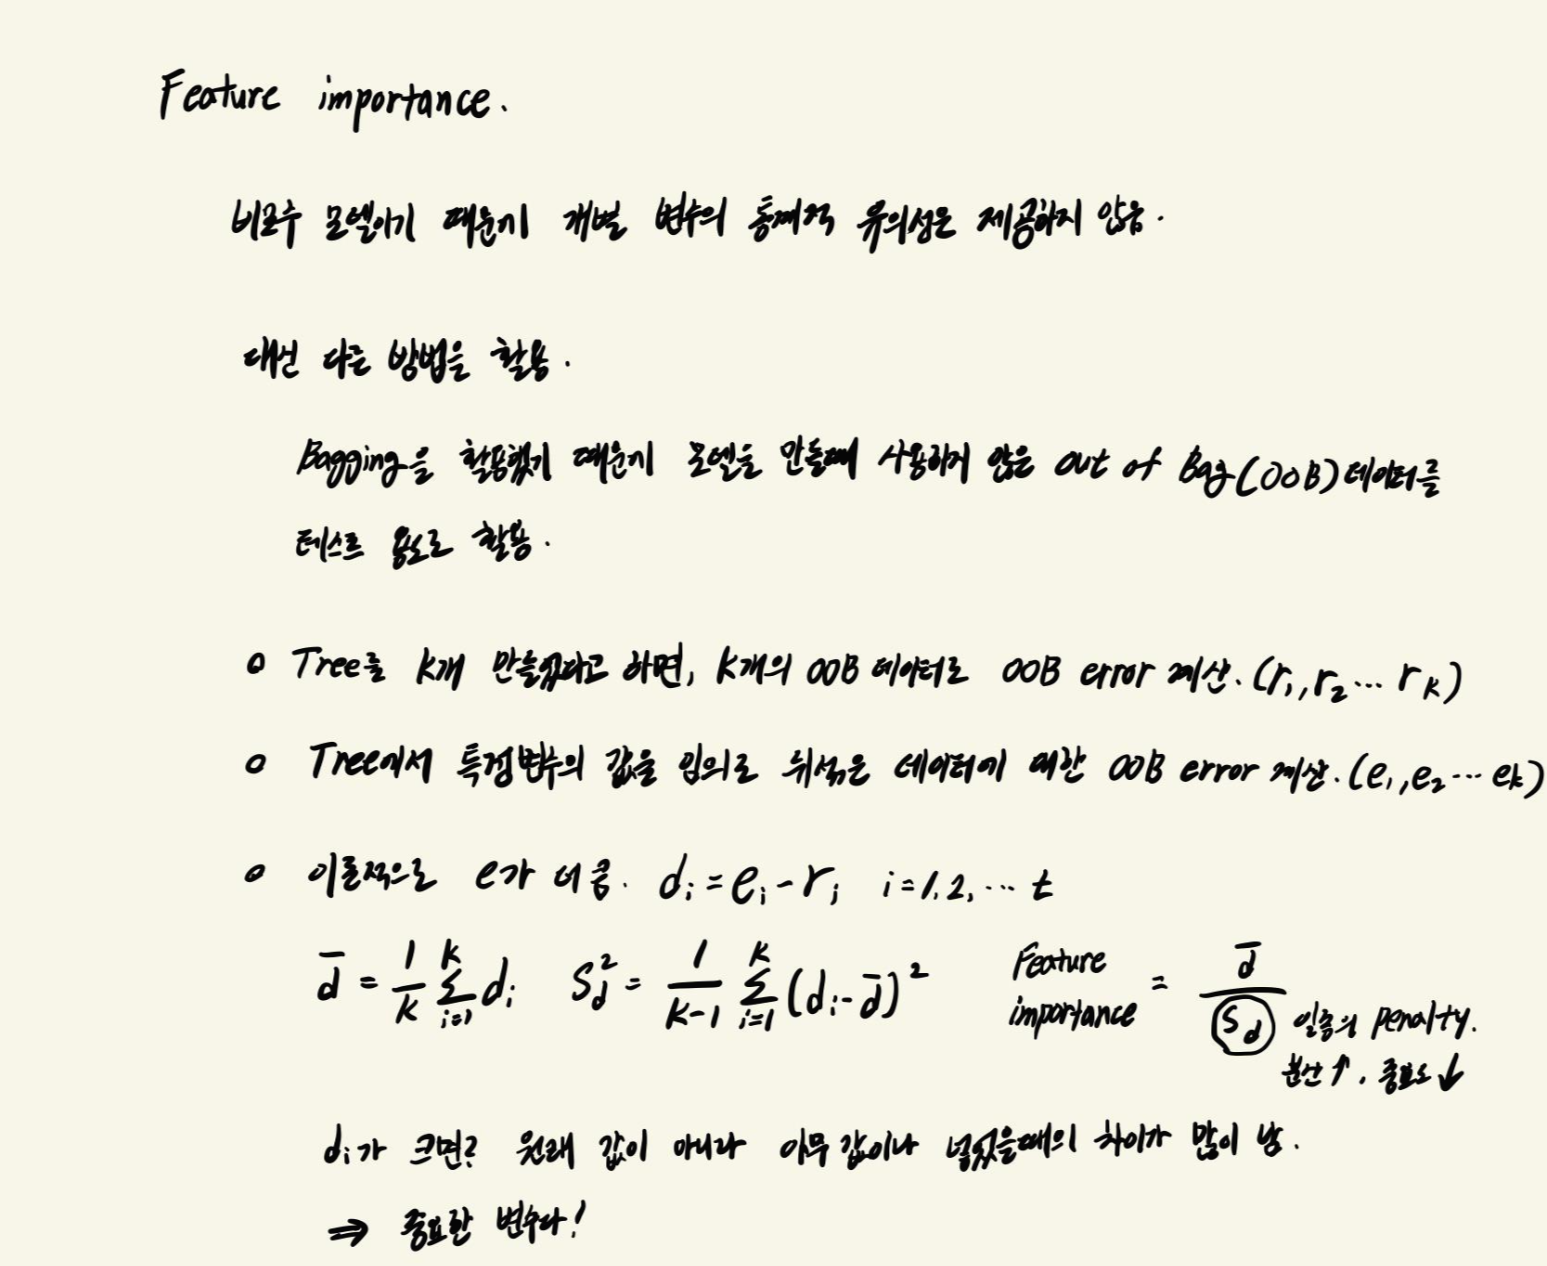 Feature importance.
비모수 모델이기 때문에 개별 변수의 통계적 유의성은 제공하지 않음.
대신 다른 방법을 활용.
Bagging을 활용했기 때문에 모델을 만들때 사용하지 않은 out of Bag(OOB) 데이터를
테스트 용도로 활용.
o Tree를 k개 만들었다고 하면, k개의 OOB 데이터로 OOB error 계산. (r₁, r₂ ... r_k)
o Tree에서 특정변수의 값을 임의로 뒤섞은 데이터에 대한 OOB error 계산. (e₁, e₂ ... e_k)
o 이론적으로 e가 더 큼. d_i = e_i - r_i i = 1, 2, ... t
d̄ = 1/k Σ_{i=1}^{k} d_i S_d² = 1/(k-1) Σ_{i=1}^{k} (d_i - d̄)² Feature importance = d̄/S_d 일종의 penalty.
분산↑, 중요도↓
d_i가 크면? 원래 값이 아니라 아무 값이나 넣었을때의 차이가 많이 남.
⇒ 중요한 변수다!